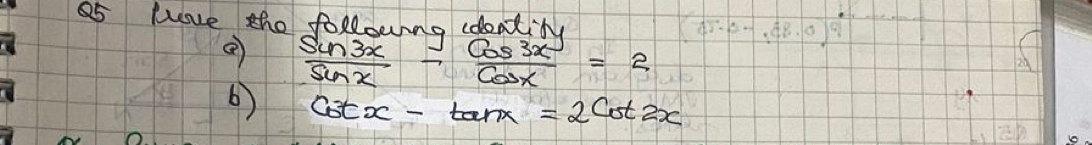 Q5 Prove the following identity
a) Sin3x/Sinx - Cos3x/Cosx = 2
b) Cotx - tanx = 2Cot2x